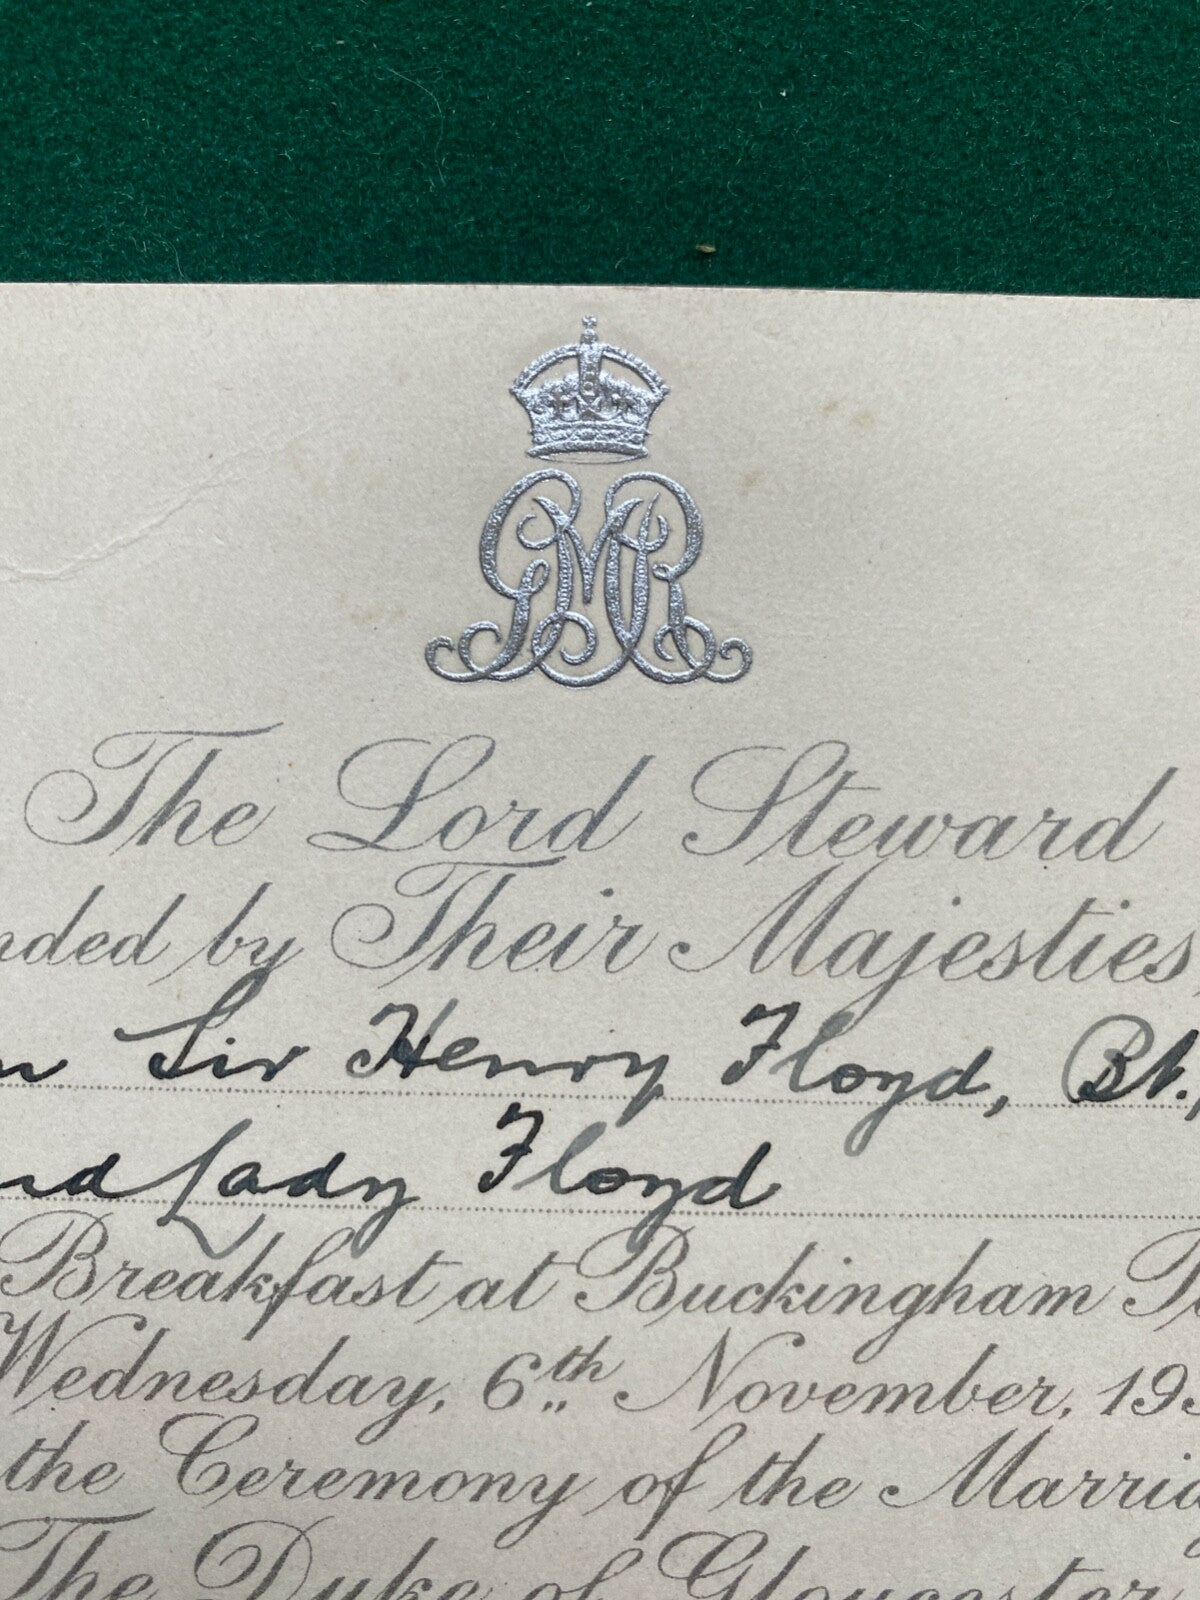 GMR
The Lord Steward
nded by Their Majesties,
Sir Henry Floyd, Bt.,
Lady Floyd
Breakfast at Buckingham
Wednesday, 6th November, 193
the Ceremony of the Marria
The Duke of Gloucester